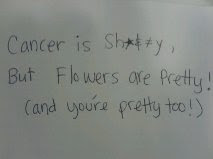 Cancer is Sh*#≠y,
But Flowers are Pretty!
(and you're pretty too!)